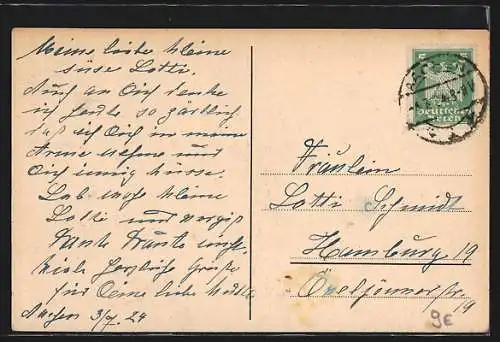 Meine liebe kleine
süsse Lotti.
Auch an Dich denke
ich heute so zärtlich
daß ich Dich in meine
Arme nehme und
Dich innig küsse.
Leb wohl kleine
Lotti und vergiß
Tante nicht.
Viele herzliche Grüße
für Deine liebe
Aachen 3/9. 24
Deutsches
Reich
Fräulein
Lotti Schmidt
Hamburg 19
str.
19
9€